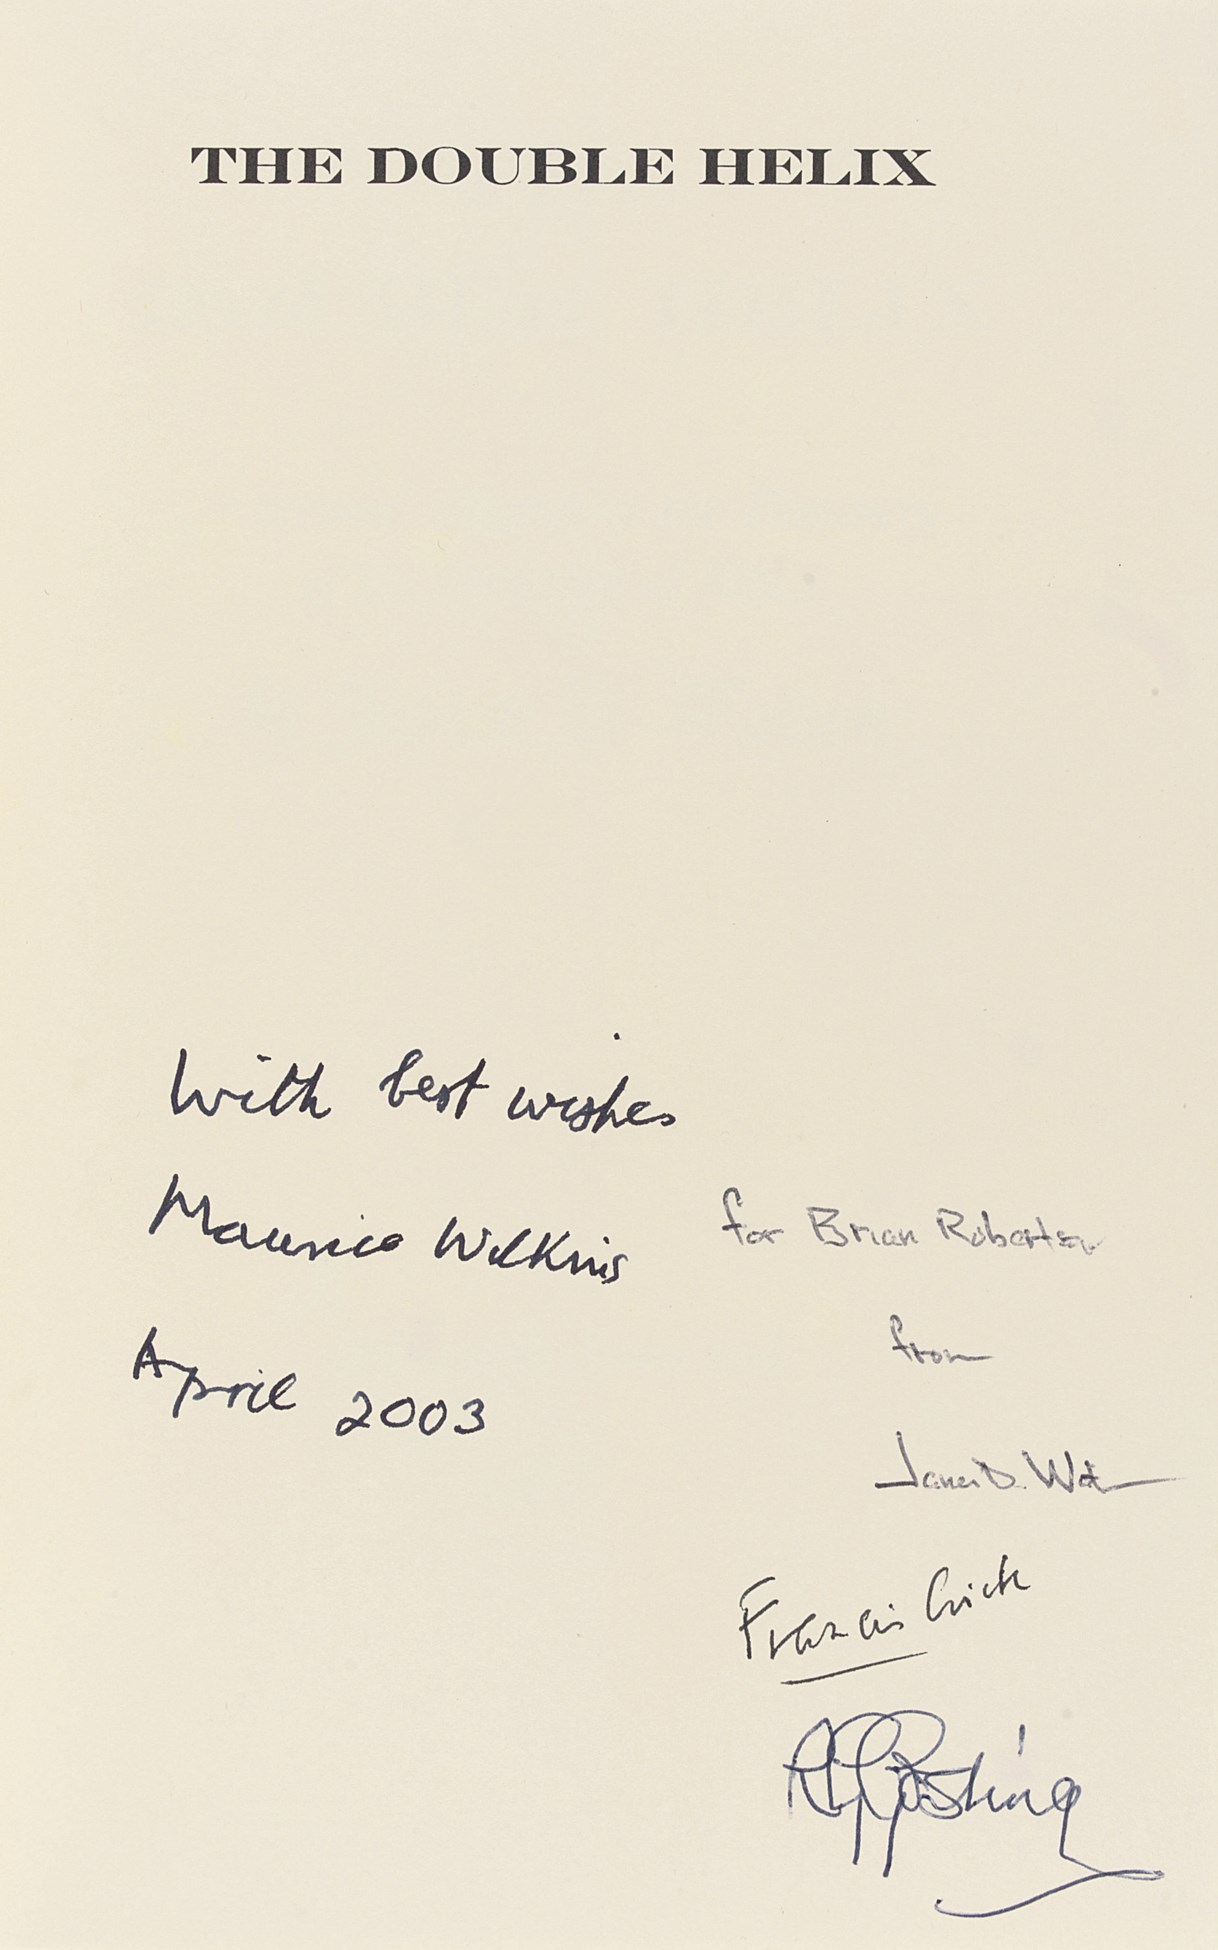 THE DOUBLE HELIX
With best wishes
Maurice Wilkins
April 2003
for Brian Robertson
from
James D. Watson
Francis Crick
R G Gosling